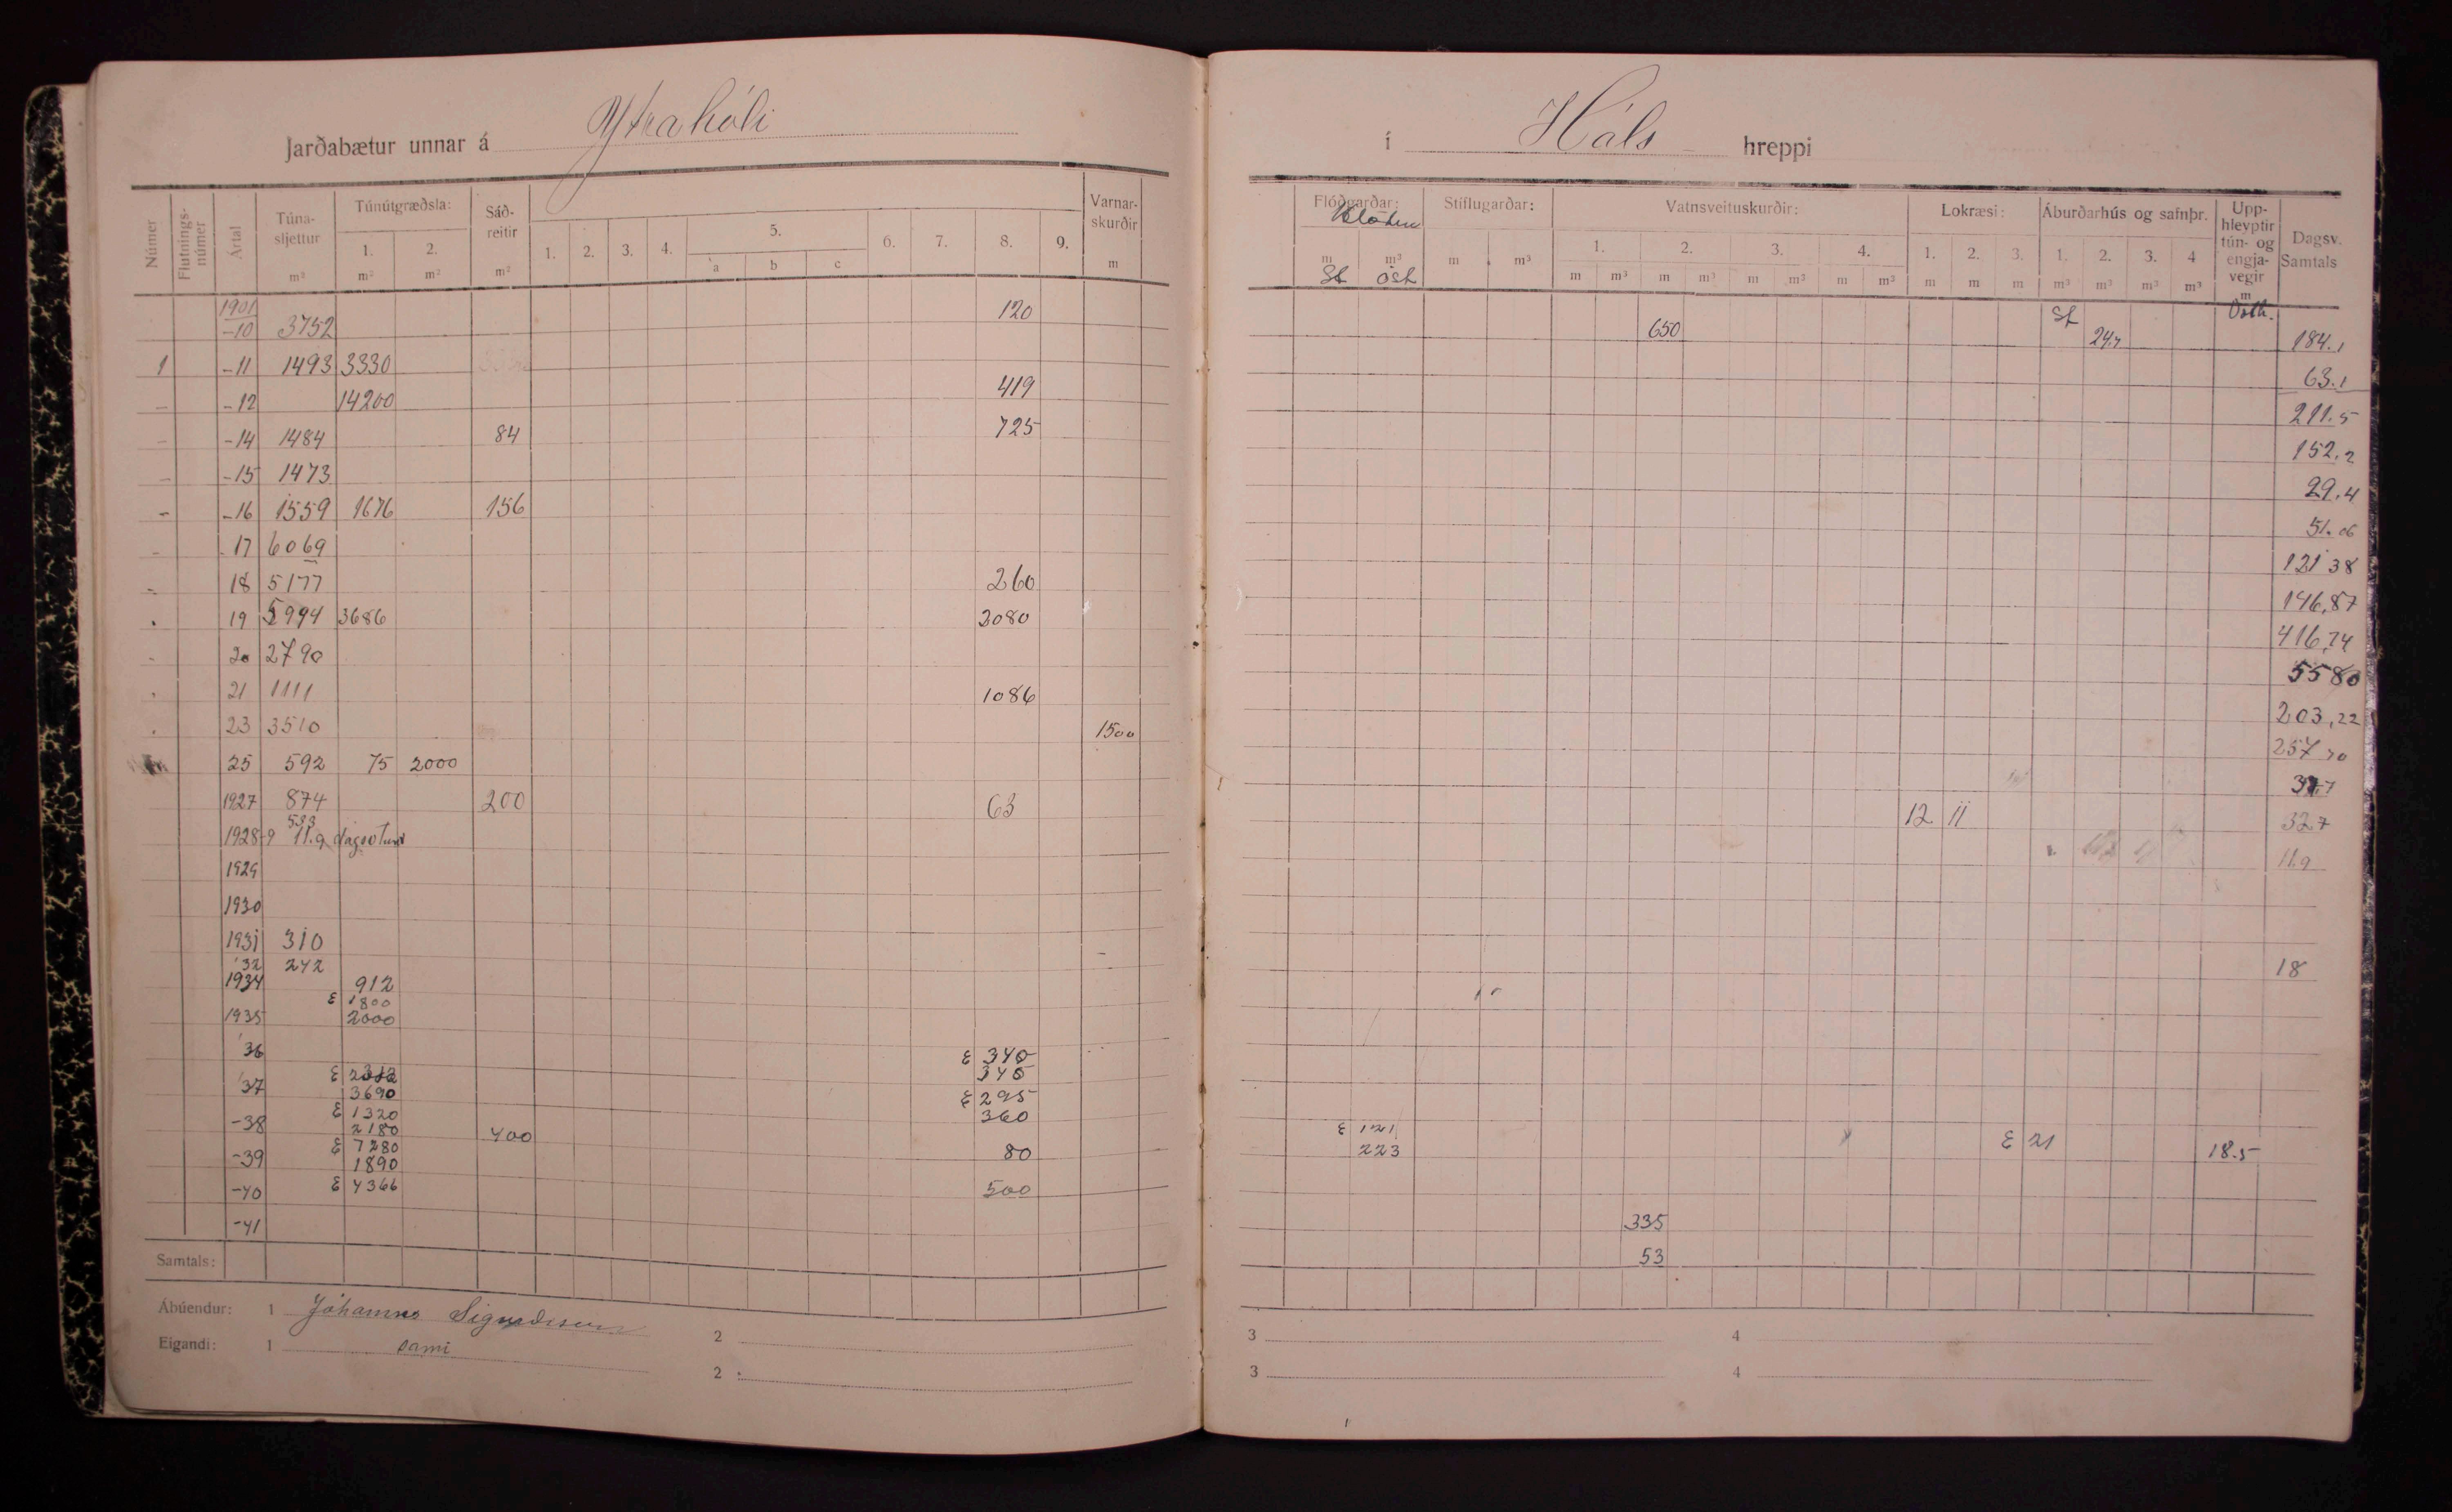 Jarðabætur unnar á Ytrahóli
Númer Flutnings-númer Ártal Túna-sljettur m² Túnútgræðsla: 1. m² 2. m² Sáð-reitir m² 1. 2. 3. 4. 5. a b c 6. 7. 8. 9. Varnar-skurðir m
1901
-10 3752 120
1 -11 1493 3330
- -12 14200 419
- -14 1484 84 725
- -15 1473
- -16 1559 1676 156
- 17 6069
- 18 5177 260
19 5994 3686 2080
20 2790
21 1111 1086
23 3510 1500
25 592 75 2000
1927 874 200 63
533
1928-9 11.9 dagsvtund
1929
1930
1931 310
'32 242
1934 912
ε 1800
1935 2000
'36 ε 340
345
'37 ε 2312
3690 ε 295
-38 ε 1320 360
2180 400
-39 ε 7280 80
1890
-40 ε 4366 500
-41
Samtals:
Ábúendur: 1 Jóhannes Sigurðsson 2
Eigandi: 1 sami 2
í Háls hreppi
Flóðgarðar: m m³ Stíflugarðar: m m³ Vatnsveituskurðir: 1. m m³ 2. m m³ 3. m m³ 4. m m³ Lokræsi: 1. m 2. m 3. m Áburðarhús og safnþr. 1. m³ 2. m³ 3. m³ 4 m³ Upp-hlevptir tún- og engja-vegir m Dagsv. Samtals
St óst
St
650 24,7 184.1
63.1
211.5
152.2
29.4
51.06
121 38
146,87
416,74
5580
203,22
257 70
12 11 32 7
11.9
18
ε 121
223 ε 21 18.5
335
53
3 4
3 4